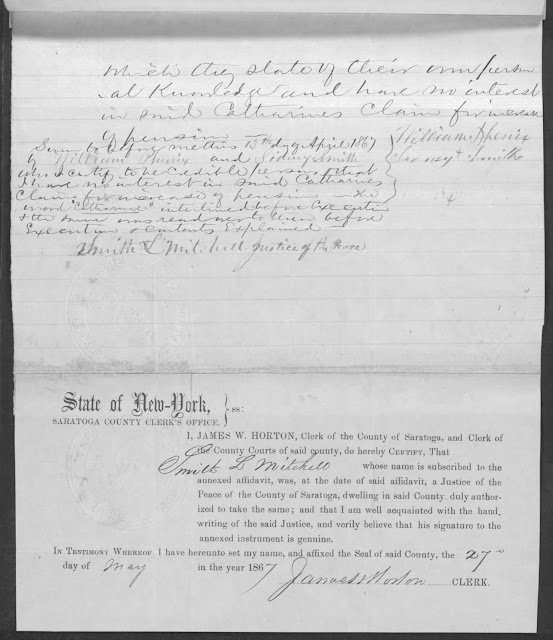 which they state of their own person
al Knowledge and have no interest
in said Catharines Claim for increase
of pension
Sworn to before me this 13th day of April 1867
by William Phenix and Sidney Smith
who I certify to be Credible persons that
I have no interest in said Catharines
Claim for increase of pension the
word "Catharines" interlined before Execution
& the same was read over to them before
Execution & contents Explained
William Phenix
Sidney Smith
Smith L Mitchell Justice of the Peace
State of New-York,
SARATOGA COUNTY CLERK'S OFFICE,
} ss:
I, JAMES W. HORTON, Clerk of the County of Saratoga, and Clerk of
the County Courts of said county, do hereby CERTIFY, That
Smith L Mitchell whose name is subscribed to the
annexed affidavit, was, at the date of said affidavit, a Justice of the
Peace of the County of Saratoga, dwelling in said County, duly author-
ized to take the same; and that I am well acquainted with the hand.
writing of the said Justice, and verily believe that his signature to the
annexed instrument is genuine.
IN TESTIMONY WHEREOF I have hereunto set my name, and affixed the Seal of said County, the 27
day of May in the year 1867 James W Horton CLERK.